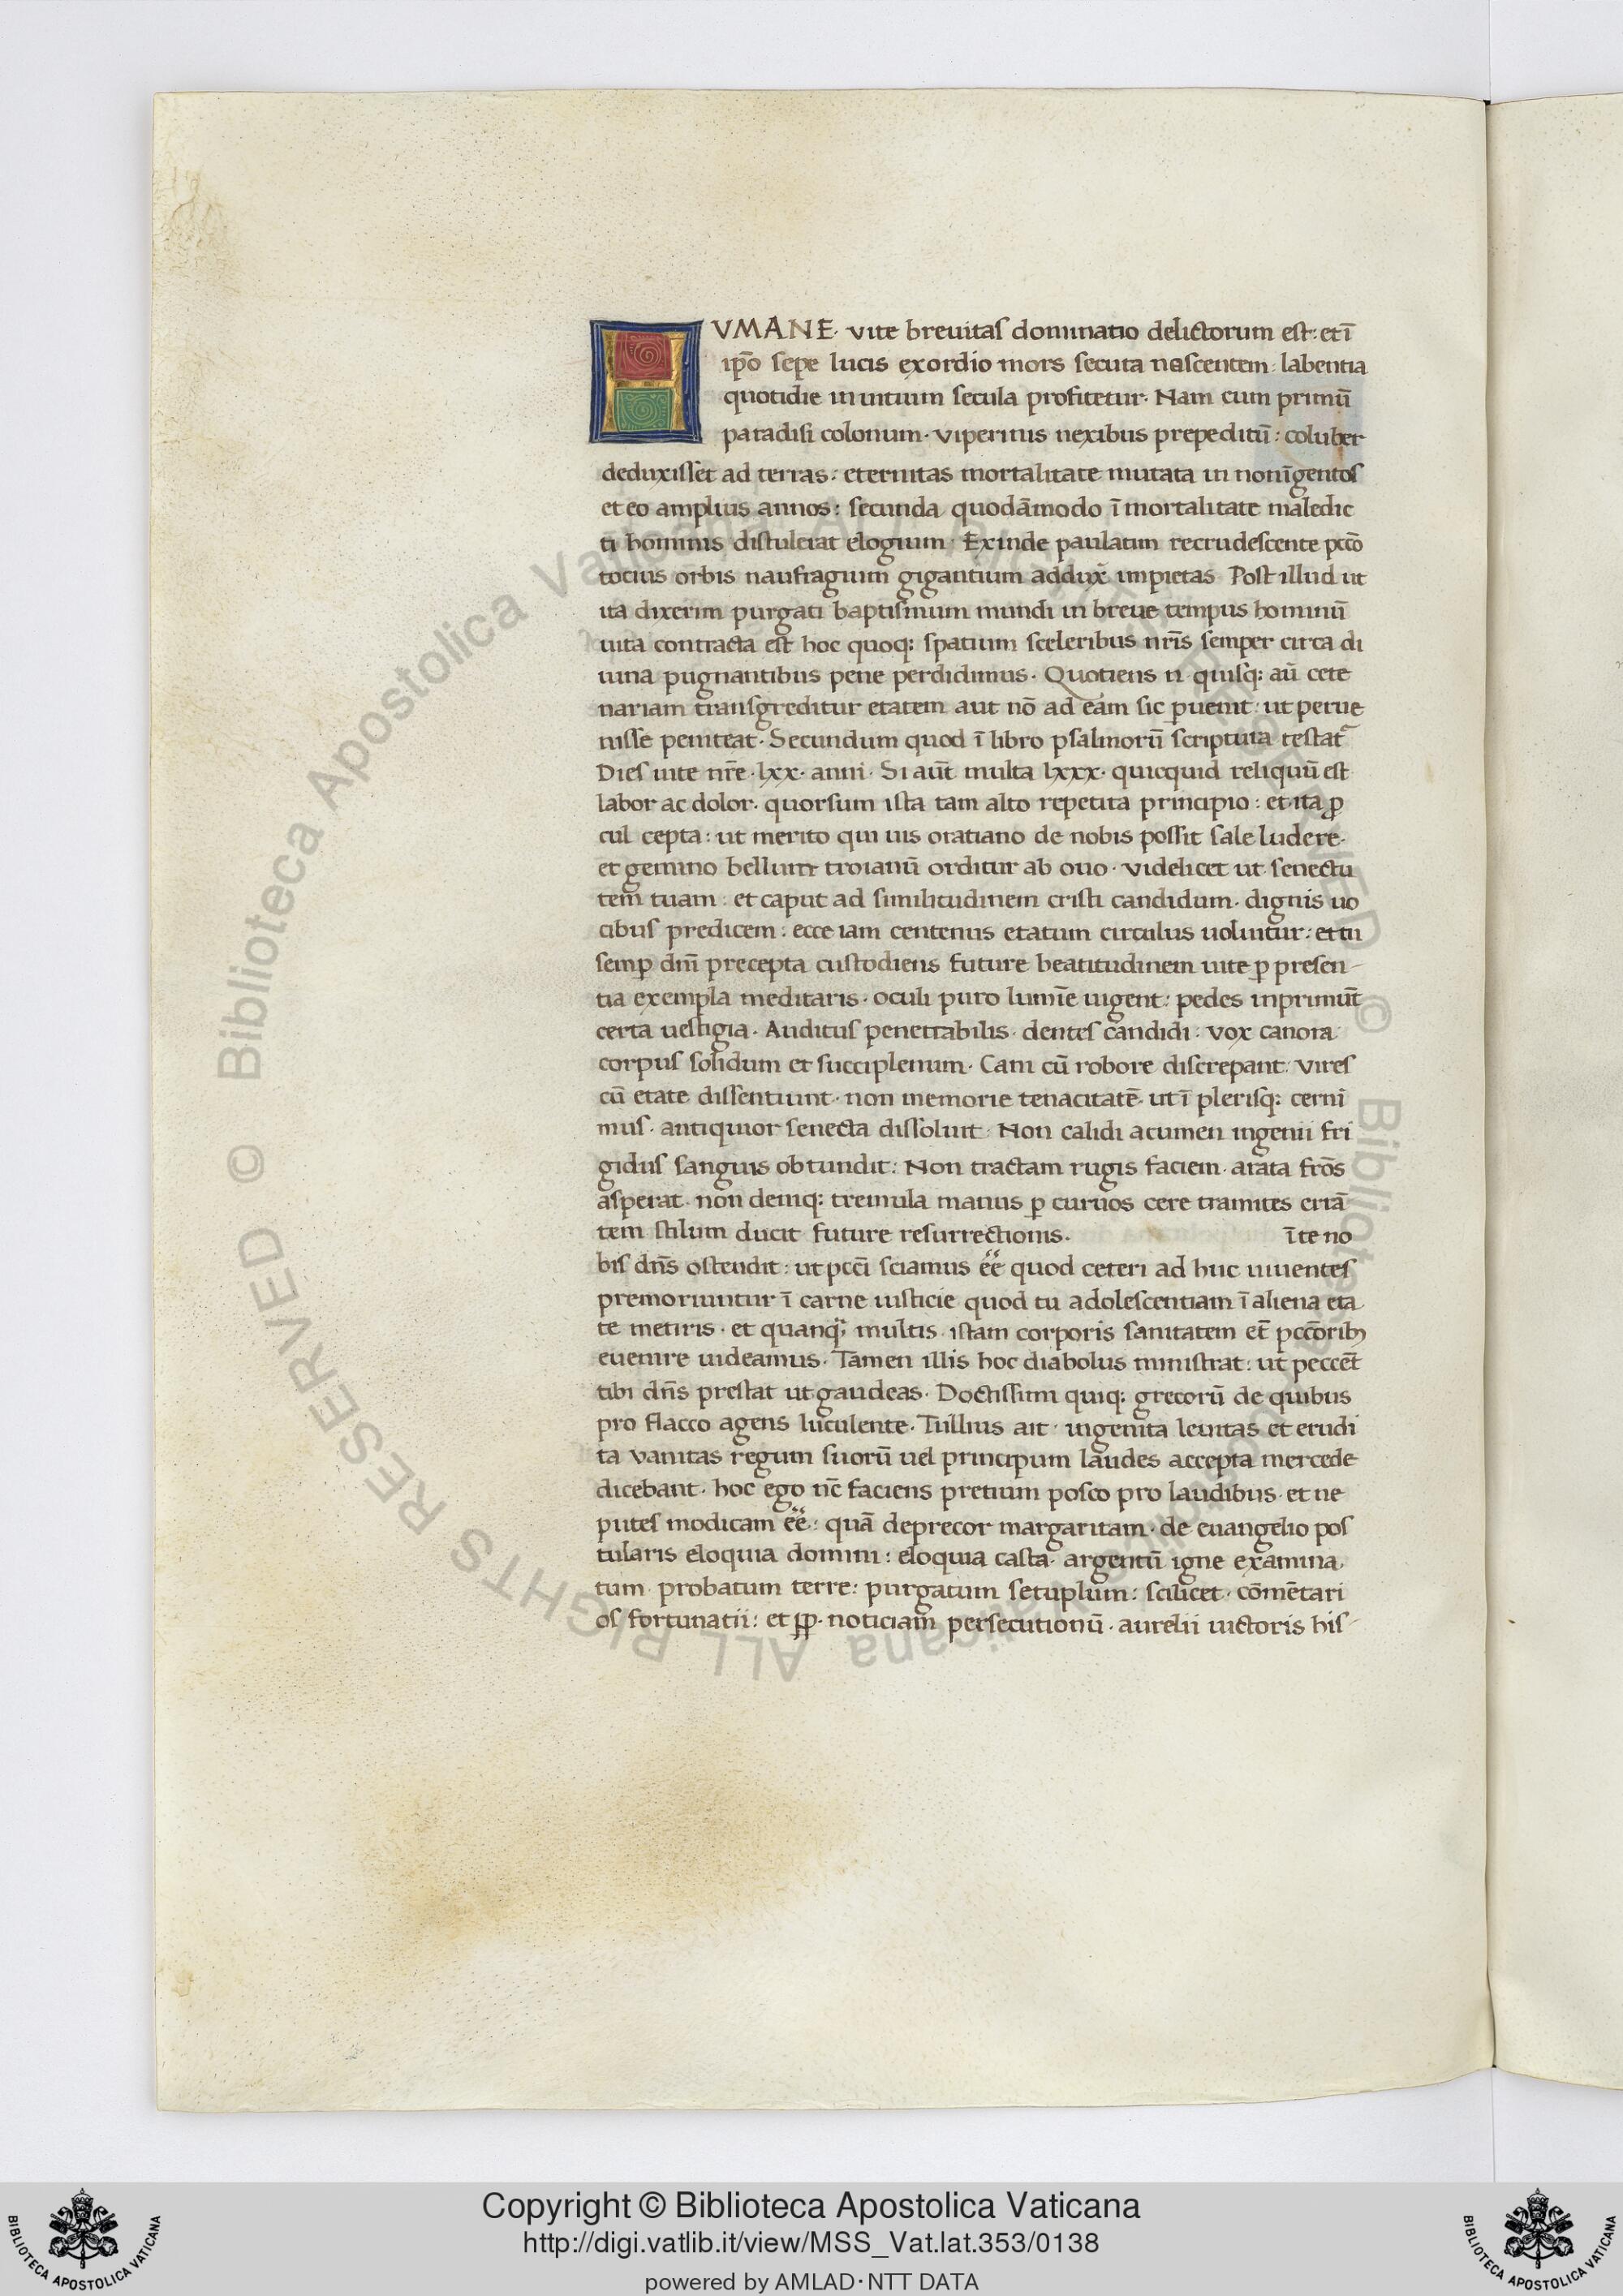 HVMANE· vite breuitas dominatio delictorum est: et ī
ip̄o sepe lucis exordio mors secuta nascentem: labentia
quotidie in uitium secula profitetur· Nam cum primū
paradisi colonum· viperinis nexibus prepeditū: coluber
deduxisset ad terras: eternitas mortalitate mutata in nonīgentos
et eo amplius annos: secunda quodāmodo ī mortalitate maledic
ti hominis distulerat elogium· Exinde paulatim recrudescente pccō
tocius orbis naufragium gigantium addux̄ impietas Post illud ut
ita dixerim purgati baptismum mundi in breue tempus hominū
uita contracta est hoc quoq: spatium sceleribus nr̄is semper circa di
uina pugnantibus pene perdidimus· Quotiens n· quisq: aū cete
nariam transgreditur etatem aut nō ad eam sic ꝑuenit: ut perue
nisse peniteat· Secundum quod ī libro psalmorū scriptura testat᷑
Dies uite nr̄e· lxx· anni· Si aūt multa lxxx· quicquid reliquū est
labor ac dolor· quorsum ista tam alto repetita principio: et ita ꝓ
cul cepta: ut merito qui uis oratiano de nobis possit sale ludere·
et gemino bellum troianū orditur ab ouo· videlicet ut senectu
tem tuam: et caput ad similitudinem cristi candidum· dignis uo
cibus predicem: ecce iam centenus etatum circulus uoluitur: et tu
semꝑ dn̄i precepta custodiens future beatitudinem uite ꝑ presen-
tia exempla meditaris· oculi puro lumīe uigent: pedes inprimūt
certa uestigia· Auditus penetrabilis· dentes candidi: vox canora
corpus solidum et succiplenum· Cani cū robore discrepant: vires
cū etate dissentiunt· non memorie tenacitatē· ut ī plerisq: cerni
mus· antiquior senecta dissoluit· Non calidi acumen ingenii fri
gidus sanguis obtundit: Non tractam rugis faciem· arata frōs
asperat· non deniq: tremula manus ꝑ curuos cere tramites errā
tem stilum ducit future resurrectionis. ī te no
bis dn̄s ostendit: ut pcci sciamus ēē quod ceteri ad huc uiuentes
premoriuntur ī carne iusticie quod tu adolescentiam ī aliena eta
te metiris· et quanq̄; multis istam corporis sanitatem et̄ pccōribꝫ
euenire uideamus· Tamen illis hoc diabolus ministrat: ut peccēt
tibi dn̄s prestat ut gaudeas· Doctissimi quiq: grecorū de quibus
pro flacco agens luculente· Tullius ait· ingenita leuitas et erudi
ta vanitas regum suorū uel principum laudes accepta mercede
dicebant· hoc ego nc̄ faciens pretium posco pro laudibus· et ne
putes modicam ēē: quā deprecor margaritam· de euangelio pos
tularis eloquia domini: eloquia casta· argentū igne examina
tum probatum terre: purgatum setuplum: scilicet· cōmētari
os fortunatii: et ꝓꝑ· noticiam persecutionū· aurelii uictoris his-
© Biblioteca Apostolica Vaticana ALL RIGHTS RESERVED © Biblioteca Apostolica Vaticana ALL RIGHTS RESERVED
Copyright © Biblioteca Apostolica Vaticana
http://digi.vatlib.it/view/MSS_Vat.lat.353/0138
powered by AMLAD·NTT DATA
BIBLIOTECA APOSTOLICA VATICANA
BIBLIOTECA APOSTOLICA VATICANA